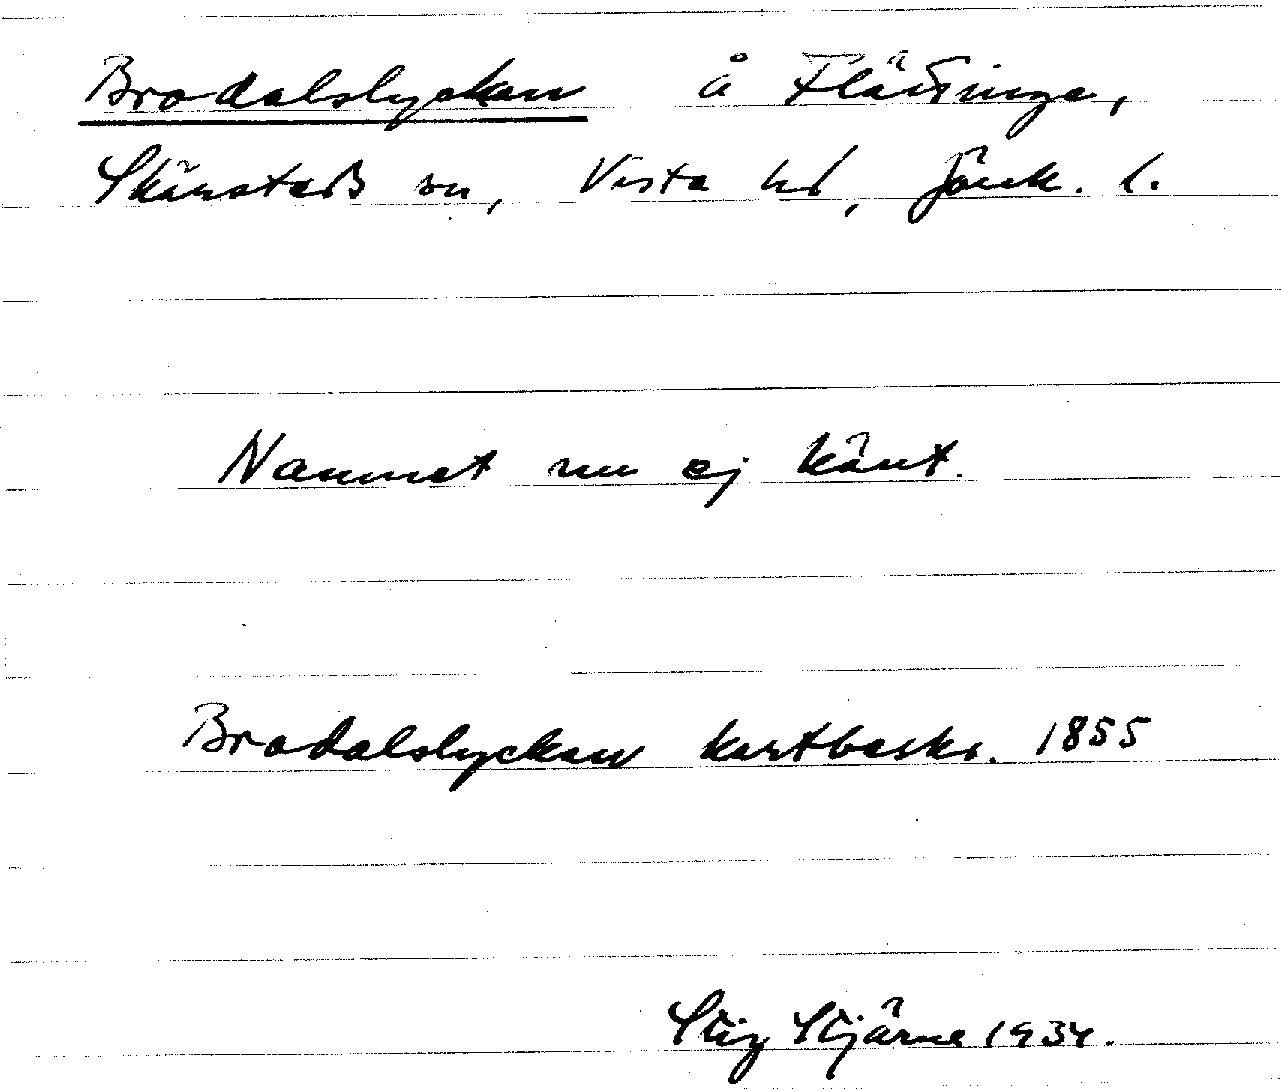 Brodalslyckan å Flättinge,
Skärstads sn, Vista hd, Jönk. l.
Namnet nu ej känt.
Brodalslyckan kartbeskr. 1855
Stig Stjärne 1934.